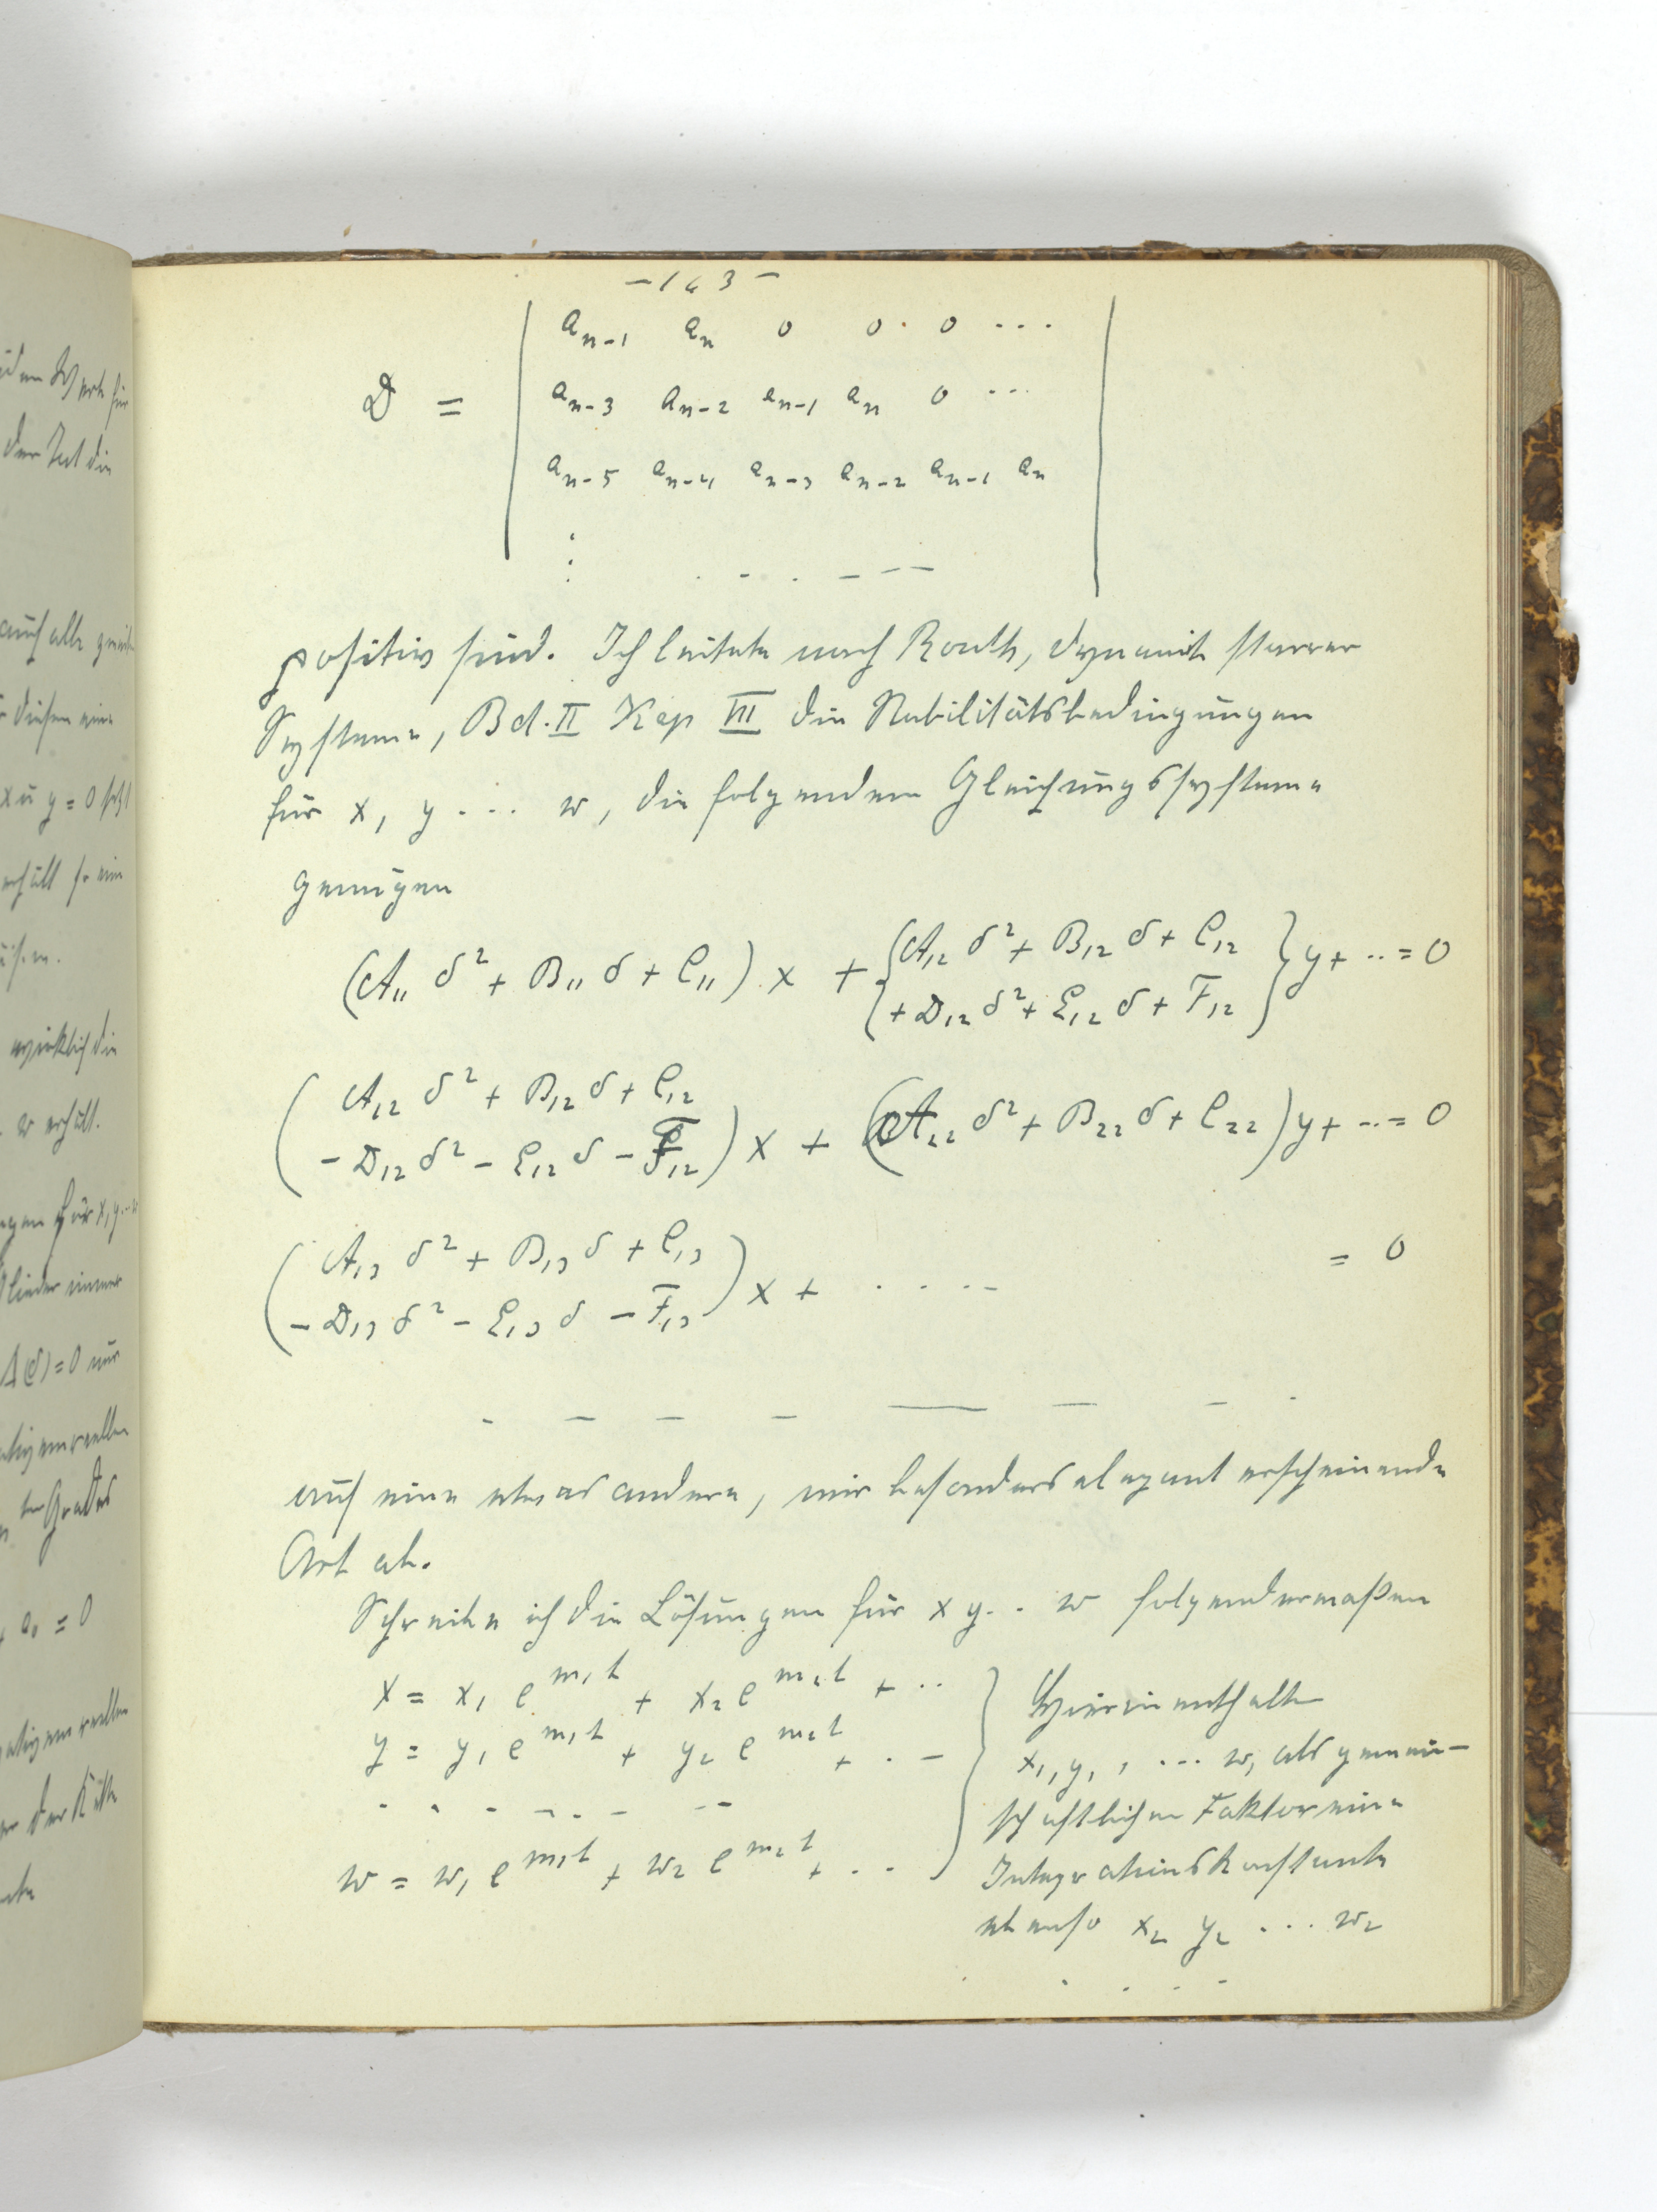 -143-
a_{n-1} a_n 0 0 0 ...
D = a_{n-3} a_{n-2} a_{n-1} a_n 0 ...
a_{n-5} a_{n-4} a_{n-3} a_{n-2} a_{n-1} a_n
positiv sind. Ich leitete nach Routh, Dynamik starrer
Systeme, Bd. II Kap III die Stabilitätsbedingungen
für x, y ... w, die folgendem Gleichungssysteme
genügen
(A₁₁ δ² + B₁₁ δ + C₁₁) x + {A₁₂ δ² + B₁₂ δ + C₁₂ + D₁₂ δ² + E₁₂ δ + F₁₂} y + ... = 0
(A₁₂ δ² + B₁₂ δ + C₁₂ - D₁₂ δ² - E₁₂ δ - F₁₂) x + (A₂₂ δ² + B₂₂ δ + C₂₂) y + ... = 0
(A₁₃ δ² + B₁₃ δ + C₁₃ - D₁₃ δ² - E₁₃ δ - F₁₃) x + .... = 0
auf eine etwas andere, mir besonders elegant erscheinende
Art ab.
Schreibe ich die Lösungen für x y .. w folgendermaßen
x = x₁ e^{m₁t} + x₂ e^{m₂t} + ..
y = y₁ e^{m₁t} + y₂ e^{m₂t} + ..
w = w₁ e^{m₁t} + w₂ e^{m₂t} + ..
Hierin enthalte
x₁, y₁, ... w₁ als gemein-
schaftlichen Faktor eine
Integrationskonstante
ebenso x₂ y₂ ... w₂